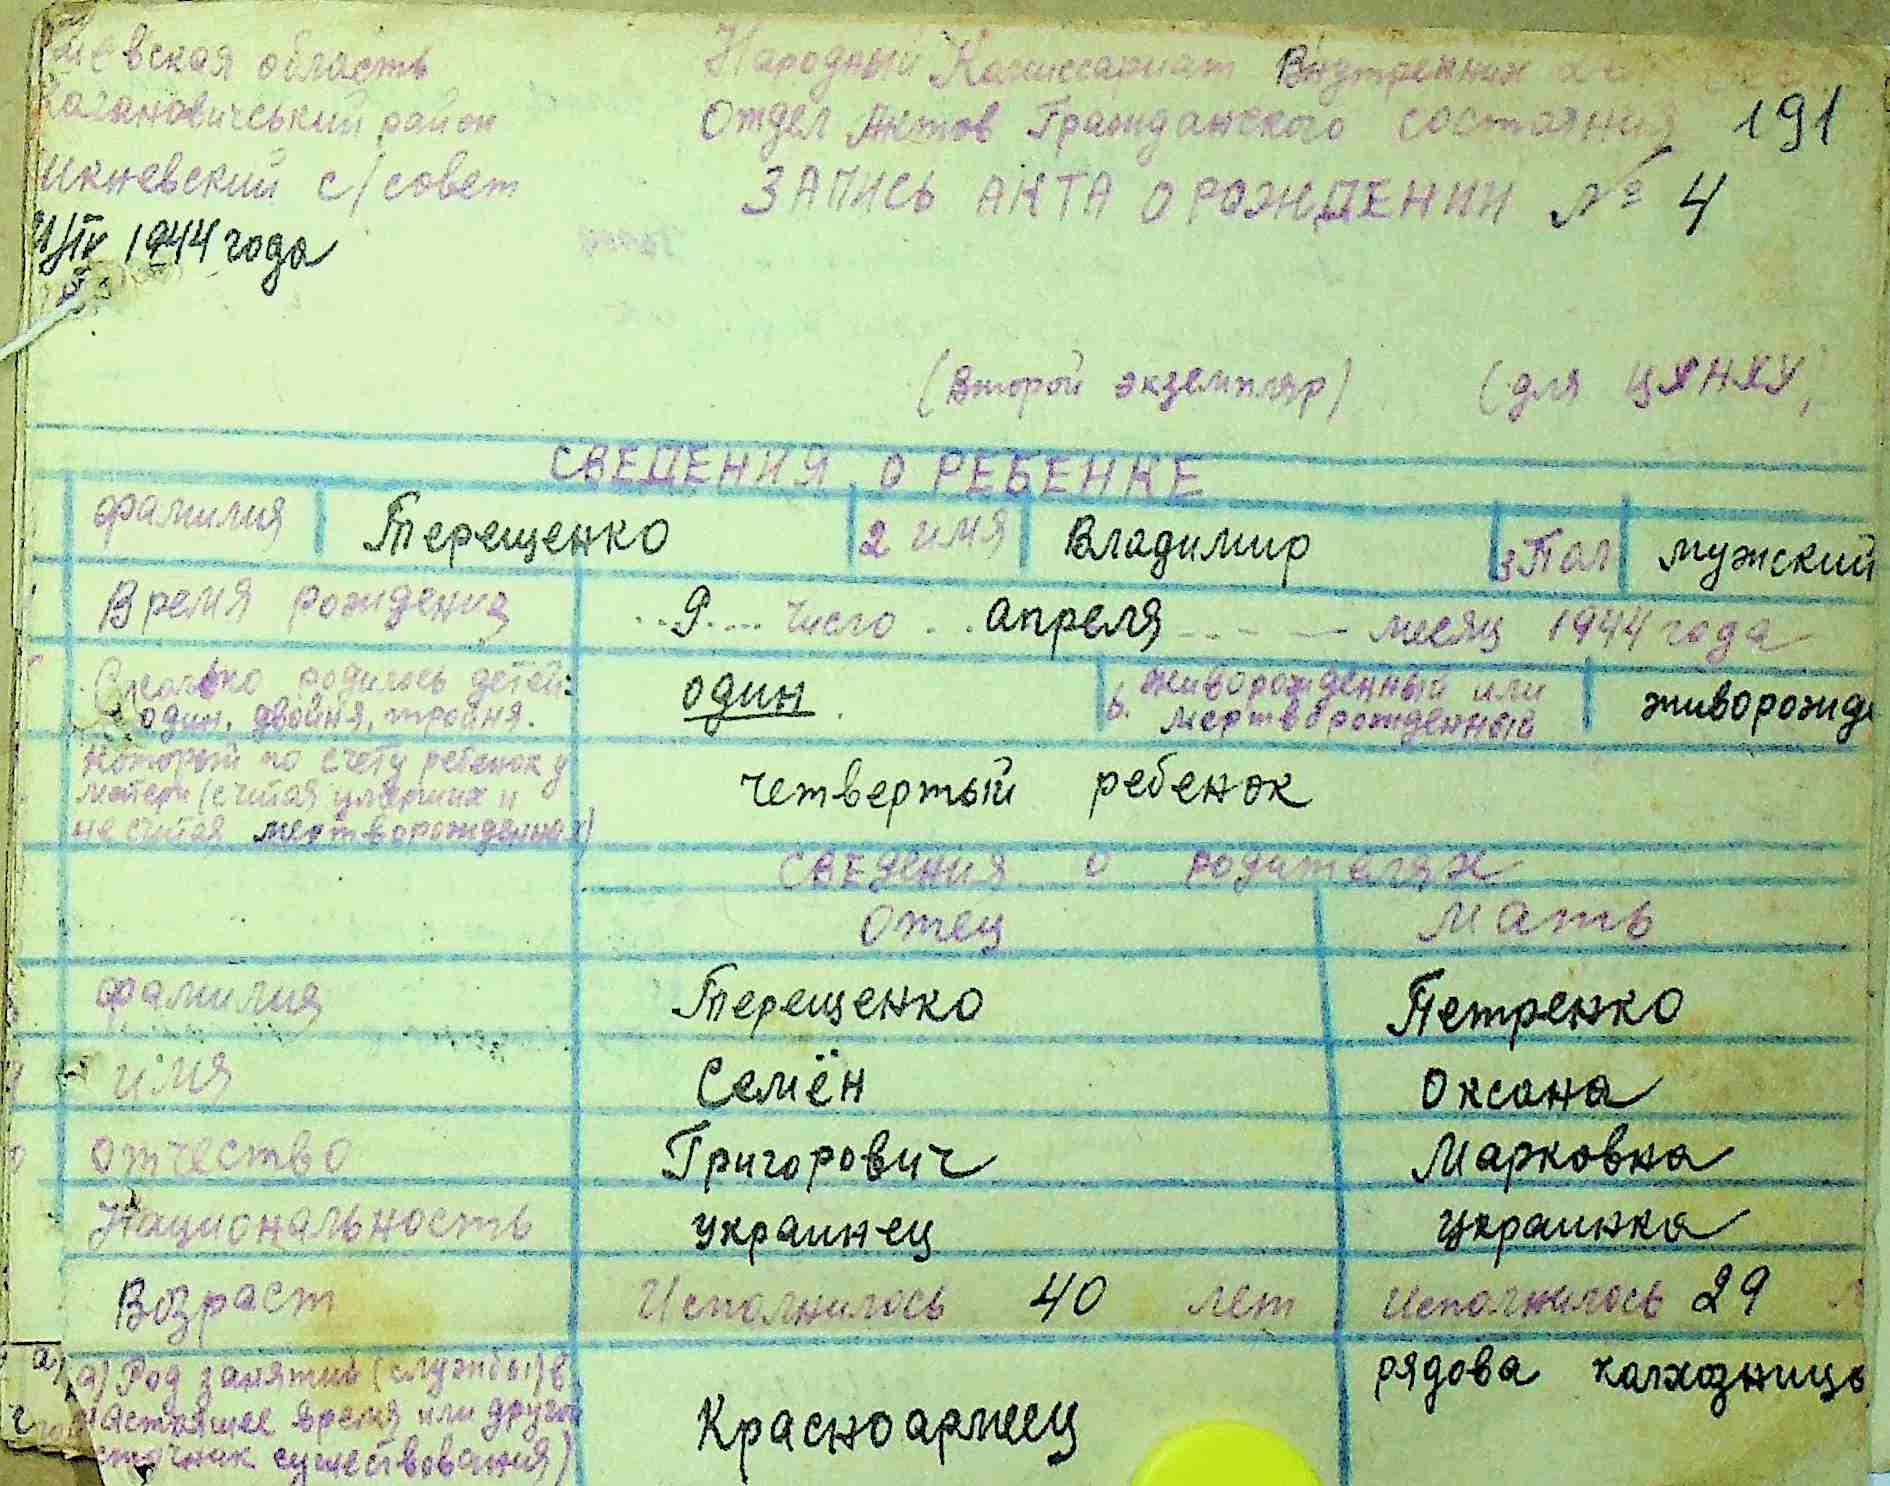 иевская область Народный Комиссариат Внутренних
Кагановичський район Отдел Актов Гражданского состояния 191
с/совет ЗАПИСЬ АКТА О РОЖДЕНИИ № 4
1944 года
(второй экземпляр) (для ЦУНХУ)
СВЕДЕНИЯ О РЕБЕНКЕ
фамилия Терещенко 2 имя Владимир 3 Пол мужский
Время рождения 9 число апреля месяц 1944 года
Сколько родилось детей: один 6. живорожденный или живорожде
один, двойня, тройня. мертворожденный
который по счету ребенок у четвертый ребенок
матери (считая умерших и
не считая мертворожденных)
сведения о родителях
Отец Мать
фамилия Терещенко Петренко
имя Семён Оксана
отчество Григорович Марковна
Национальность украинец украинка
Возраст Исполнилось 40 лет Исполнилось 29 л
а) Род занятий (службы) в Красноармеец рядова колхозниць
настоящее время или другой
источник существования)